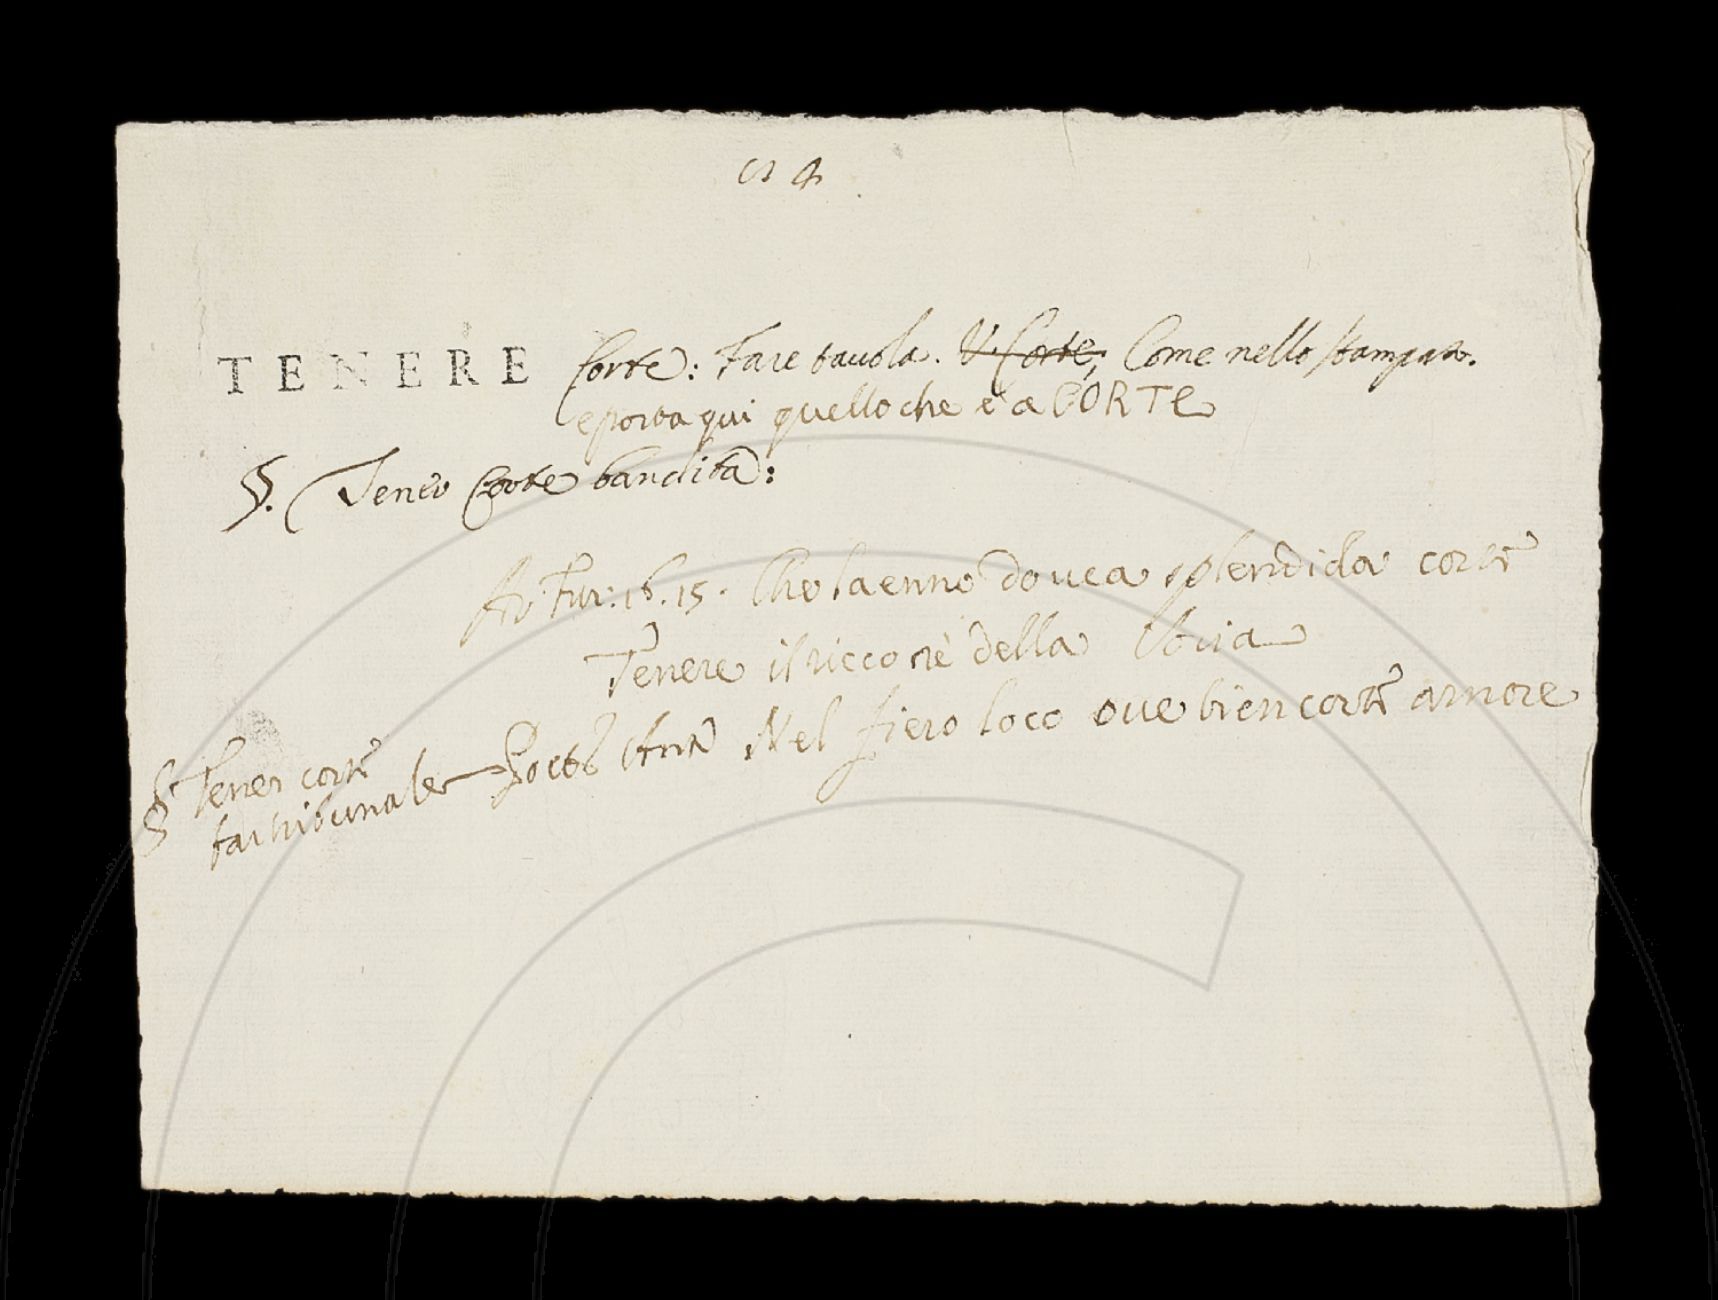 TENERE Corte: Fare tavola. V. Corte, Come nello stampato.
e porta qui quello che è a CORTE
§. Tener Corte bandita:
Ar. Fur: 16. 15. Che la enno dovea splendida corte
Tenere il ricco re della
§ Tener corte
far tribunale Nel fiero loco ove bien corte amore